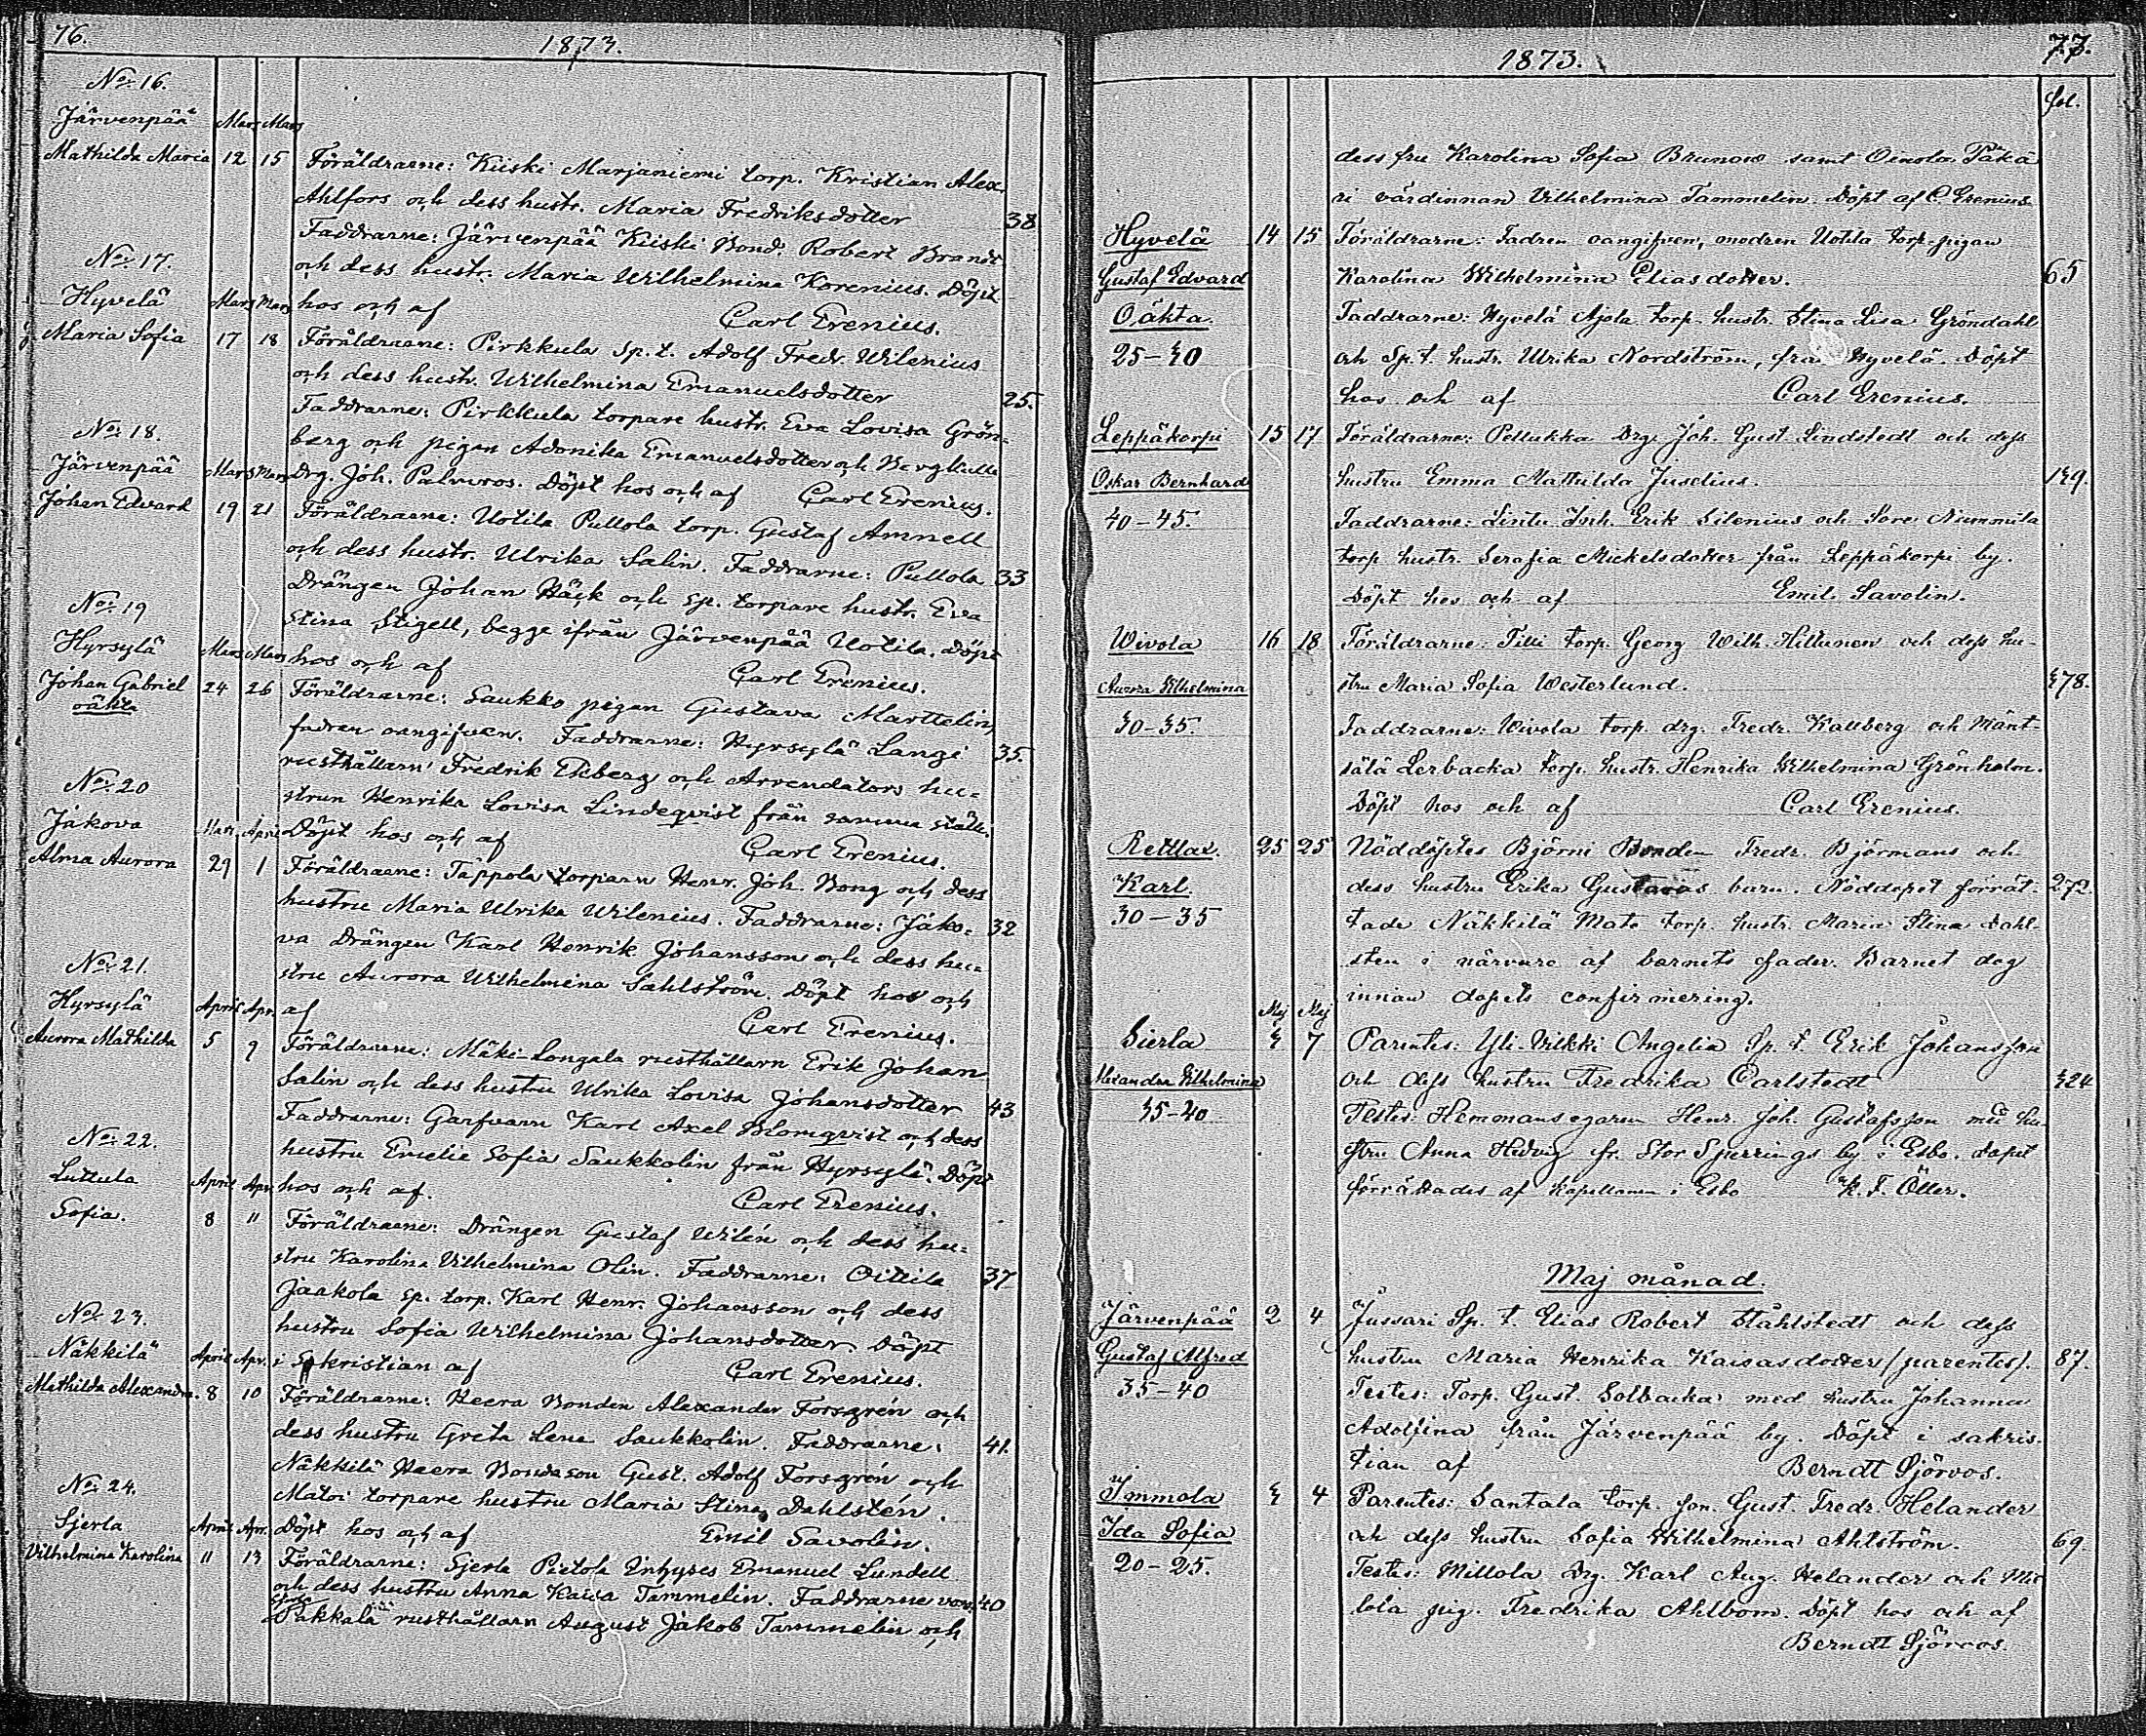 76.
1873.
No 16.
Järvenpää Mars Mars
Mathilda Maria 12 15 Föräldrarne: Kiiski Marjaniemi torp. Kristian Alex.
Ahlfors och dess hustr. Maria Fredriksdotter 38
Faddrarne: Järvenpää Kiiski Bond. Robert Brandt
No 17.
och dess hustr. Maria Wilhelmina Korenius. Döpt
Hyvelä Mars Mars hos och af Carl Grenius.
Maria Sofia 17 18 Föräldrarne: Pirkkula Sp.t. Adolf Fredr. Wilenius
och dess hustr. Wilhelmina Emanuelsdotter 25.
Faddrarne: Pirkkula torpare hustr. Eva Lovisa Grön-
No 18.
berg och pigan Adonika Emanuelsdotter och Bergkulla
Järvenpää Mars Mars Drg. Joh. Palmros. Döpt hos och af Carl Grenius.
Johan Edvard 19 21 Föräldrarne: Uotila Pullola torp. Gustaf Amnell
och dess hustr. Ulrika Salin. Faddrarne: Pullola 33
Drängen Johan Häck och sp. torpare hustr. Eva
No 19
Stina Stigell, begge ifrån Järvenpää Uotila. Döpt
Hyrsylä Mars Mars hos och af Carl Grenius.
Johan Gabriel 24 26 Föräldrarne: Saukko pigan Gustava Marttelin,
oäkta
fadren oangifven. Faddrarne: Hyrsylä Langi 35.
rusthållarn Fredrik Ekberg och Arrendators hu-
No 20
strun Henrika Lovisa Lindeqvist från samma ställe.
Jakova Mars April Döpt hos och af Carl Grenius.
Alma Aurora 29 1 Föräldrarne: Tåppola torparn Henr. Joh. Bong och dess
hustru Maria Ulrika Wilenius. Faddrarne: Jako- 32
va Drängen Karl Henrik Johansson och dess hu-
No 21.
stru Aurora Wilhelmina Sahlström. Döpt hos och
Hyrsylä April Apr. af Carl Grenius.
Aurora Mathilda 5 9 Föräldrarne: Mäki-Longala rusthållarn Erik Johan
Salin och dess hustru Ulrika Lovisa Johansdotter 43
Faddrarne: Garfvarn Karl Axel Blomqvist och dess
No 22.
hustru Emelie Sofia Saukkolin från Hyrsylä. Döpt
Luttula April Apr. hos och af. Carl Grenius.
Sofia. 8 11 Föräldrarne: Drängen Gustaf Wilén och dess hu-
stru Karolina Vilhelmina Olin. Faddrarne: Oittila 37
Jaakola sp. torp. Karl Henr. Johansson och dess
No 23.
hustru Sofia Wilhelmina Johansdotter Döpt
Näkkilä April Apr. i Sakristian af Carl Grenius.
Mathilda Alexandra. 8 10 Föräldrarne: Heera Bonden Alexander Forsgrén och
dess hustru Greta Lena Saukkolin. Faddrarne: 41.
Näkkilä Heera Bondeson Gust. Adolf Forsgrén och
No 24.
Matoi torpare hustru Maria Stina Dahlstén.
Sjerla April Apr. Döpt hos och af Emil Savolin.
Vilhelmina Karolina 11 13 Föräldrarne: Sjerla Pietola Inhyses Emanuel Lundell
och dess hustru Anna Kaisa Tammelin. Faddrarne voro: 40
Pakkala rusthållarn August Jakob Tammelin och
1873. 77.
fol.
dess fru Karolina Sofia Brunow samt Oinola Päkä
ri värdinnan Vilhelmina Tammelin. Döpt af C. Grenius.
Hyvelä 14 15 Föräldrarne: Fadren oangifven, modren Uotila torp. pigan
Gustaf Edvard Karolina Wilhelmina Eliasdotter. 65
Oäkta. Faddrarne: Hyvelä Ajola torp. hustr. Stina Lisa Gröndahl
25-30 och Sp.t. hustr. Ulrika Nordström, från Hyvelä. Döpt
hos och af Carl Grenius.
Leppäkorpi 15 17 Föräldrarne: Pellukka Drg. Joh. Gust. Lindstedt och dess
Oskar Bernhard hustru Emma Mathilda Juselius. 139.
40-45. Faddrarne: Lintu Inh. Erik Silenius och Sare Nummila
torp. hustr. Serafia Mickelsdotter från Leppäkorpi by.
Döpt hos och af Emil Savolin.
Wivola 16 18 Föräldrarne: Tilli torp. Georg Wilh. Hiltunen och dess hu-
Aurora Wilhelmina stru Maria Sofia Westerlund. 378.
30-35. Faddrarne: Wivola torp. drg. Fredr. Kallberg och Mänt-
sälä Lerbacka torp. hustr. Henrika Wilhelmina Grönholm.
Döpt hos och af Carl Grenius.
Rettlax. 25 25 Nöddöptes Björni Bonden Fredr. Björmans och
Karl. dess hustru Erika Gustavas barn. Nöddopet förrät- 272.
30-35 tade Näkkilä Mato torp. hustr. Maria Stina Dahl-
sten i närvaro af barnets fader. Barnet dog
innan dopets confirmering.
Maj Maj
Sierla 3 7 Parentes: Yli-Vilkki Angelia Sp.t. Erik Johansson
Alexandra Vilhelmina och dess hustru Fredrika Carlstedt 324
35-40 Testes: Hemmansegaren Henr. Joh. Gustafsson med hu-
stru Anna Hedvig fr. Stor Sperrings by i Esbo. Dopet
förrättades af Kapellanen i Esbo K. F. Öller.
Maj månad.
Järvenpää 2 4 Jussari Sp.t. Elias Robert Ståhlstedt och dess
Gustaf Alfred hustru Maria Henrika Kaisasdotter (parentes). 87.
35-40 Testes: Torp. Gust. Solbacka med hustru Johanna
Adolfina från Järvenpää by. Döpt i sakris-
tian af Berndt Sjöroos.
Immola 3 4 Parentes: Santala torp. son. Gust. Fredr. Helander
Ida Sofia och dess hustru Sofia Wilhelmina Ahlström. 69.
20-25. Testes: Millola Drg. Karl Aug. Helander och Mil
lola pig. Fredrika Ahlbom. Döpt hos och af
Berndt Sjöroos.